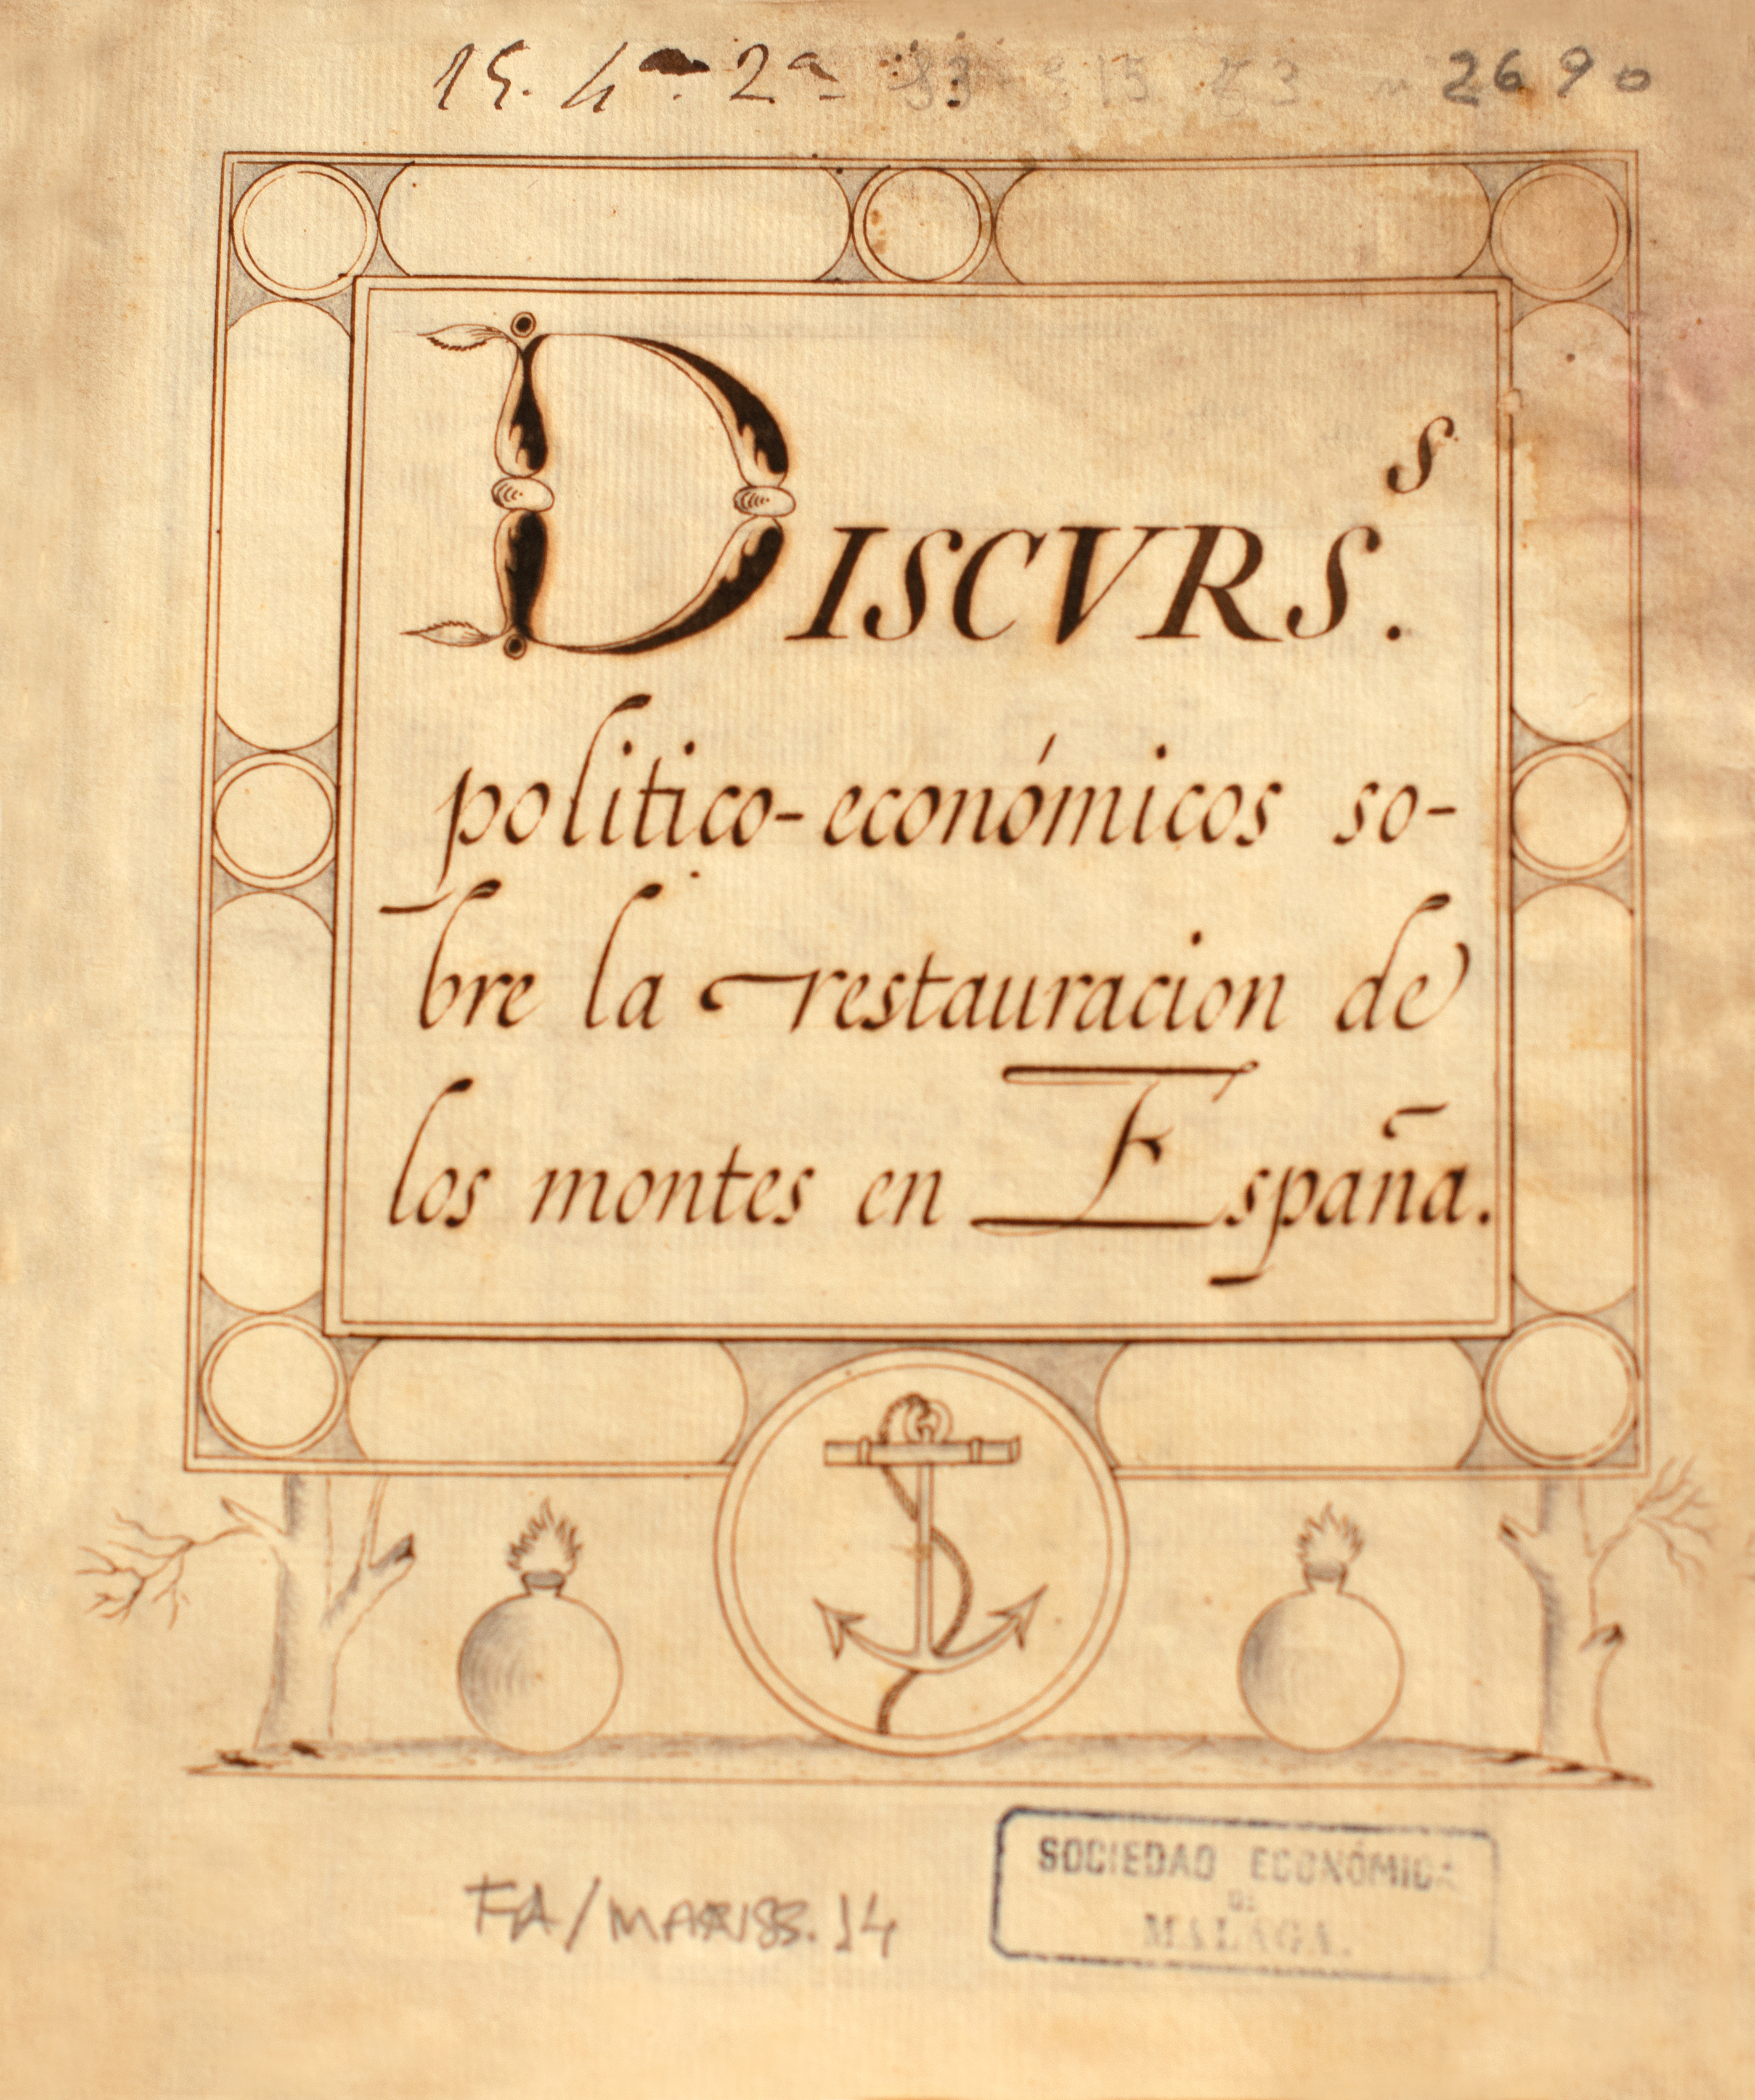 15. 4ª. 2ª 2690
DISCVRS.ˢ
politico-económicos so-
bre la restauracion de
los montes en España.
FA/MANSS. 14
SOCIEDAD ECONÓMICA
DE
MALAGA.